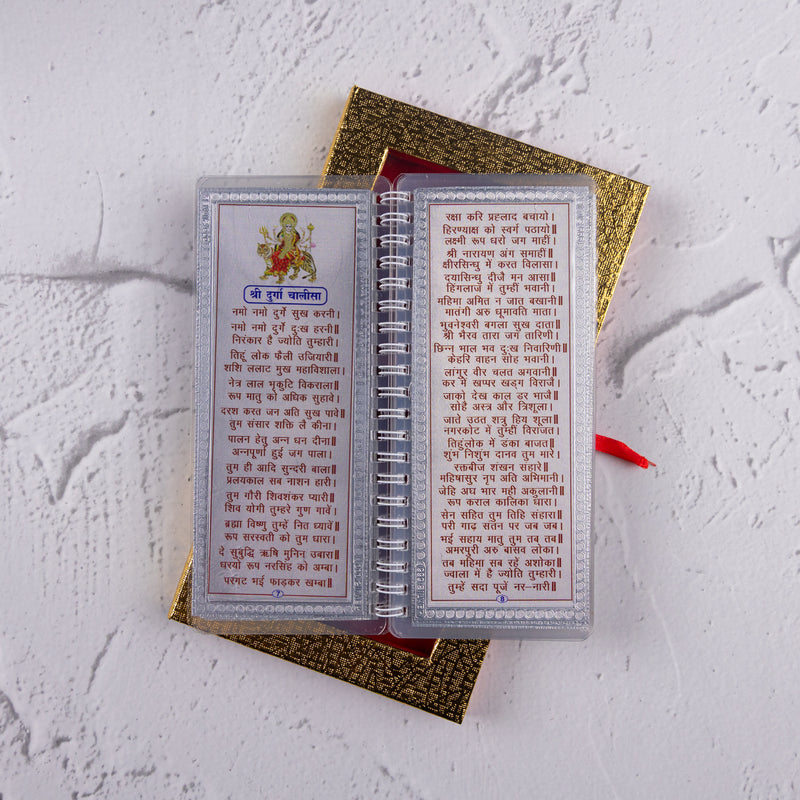 श्री दुर्गा चालीसा
नमो नमो दुर्गे सुख करनी।
नमो नमो दुर्गे दुःख हरनी॥
निरंकार है ज्योति तुम्हारी।
तिहूं लोक फैली उजियारी॥
शशि ललाट मुख महाविशाला।
नेत्र लाल भृकुटि विकराला॥
रूप मातु को अधिक सुहावे।
दरश करत जन अति सुख पावे॥
तुम संसार शक्ति लै कीना।
पालन हेतु अन्न धन दीना॥
अन्नपूर्णा हुई जग पाला।
तुम ही आदि सुन्दरी बाला॥
प्रलयकाल सब नाशन हारी।
तुम गौरी शिवशंकर प्यारी॥
शिव योगी तुम्हरे गुण गावें।
ब्रह्मा विष्णु तुम्हें नित ध्यावें॥
रूप सरस्वती को तुम धारा।
दे सुबुद्धि ऋषि मुनिन उबारा॥
धरयो रूप नरसिंह को अम्बा।
परगट भई फाड़कर खम्बा॥
7
रक्षा करि प्रह्लाद बचायो।
हिरण्याक्ष को स्वर्ग पठायो॥
लक्ष्मी रूप धरो जग माहीं।
श्री नारायण अंग समाहीं॥
क्षीरसिन्धु में करत विलासा।
दयासिन्धु दीजै मन आसा॥
हिंगलाज में तुम्हीं भवानी।
महिमा अमित न जात बखानी॥
मातंगी अरु धूमावति माता।
भुवनेश्वरी बगला सुख दाता॥
श्री भैरव तारा जग तारिणी।
छिन्न भाल भव दुःख निवारिणी॥
केहरि वाहन सोह भवानी।
लांगुर वीर चलत अगवानी॥
कर में खप्पर खड्ग विराजै।
जाको देख काल डर भाजै॥
सोहै अस्त्र और त्रिशूला।
जाते उठत शत्रु हिय शूला॥
नगरकोट में तुम्हीं विराजत।
तिहुंलोक में डंका बाजत॥
शुंभ निशुंभ दानव तुम मारे।
रक्तबीज शंखन संहारे॥
महिषासुर नृप अति अभिमानी।
जेहि अघ भार मही अकुलानी॥
रूप कराल कालिका धारा।
सेन सहित तुम तिहि संहारा॥
परी गाढ़ सतन पर जब जब।
भई सहाय मातु तुम तब तब॥
अमरपुरी अरु बासव लोका।
तब महिमा सब रहें अशोका॥
ज्वाला में है ज्योति तुम्हारी।
तुम्हें सदा पूजें नर-नारी॥
8